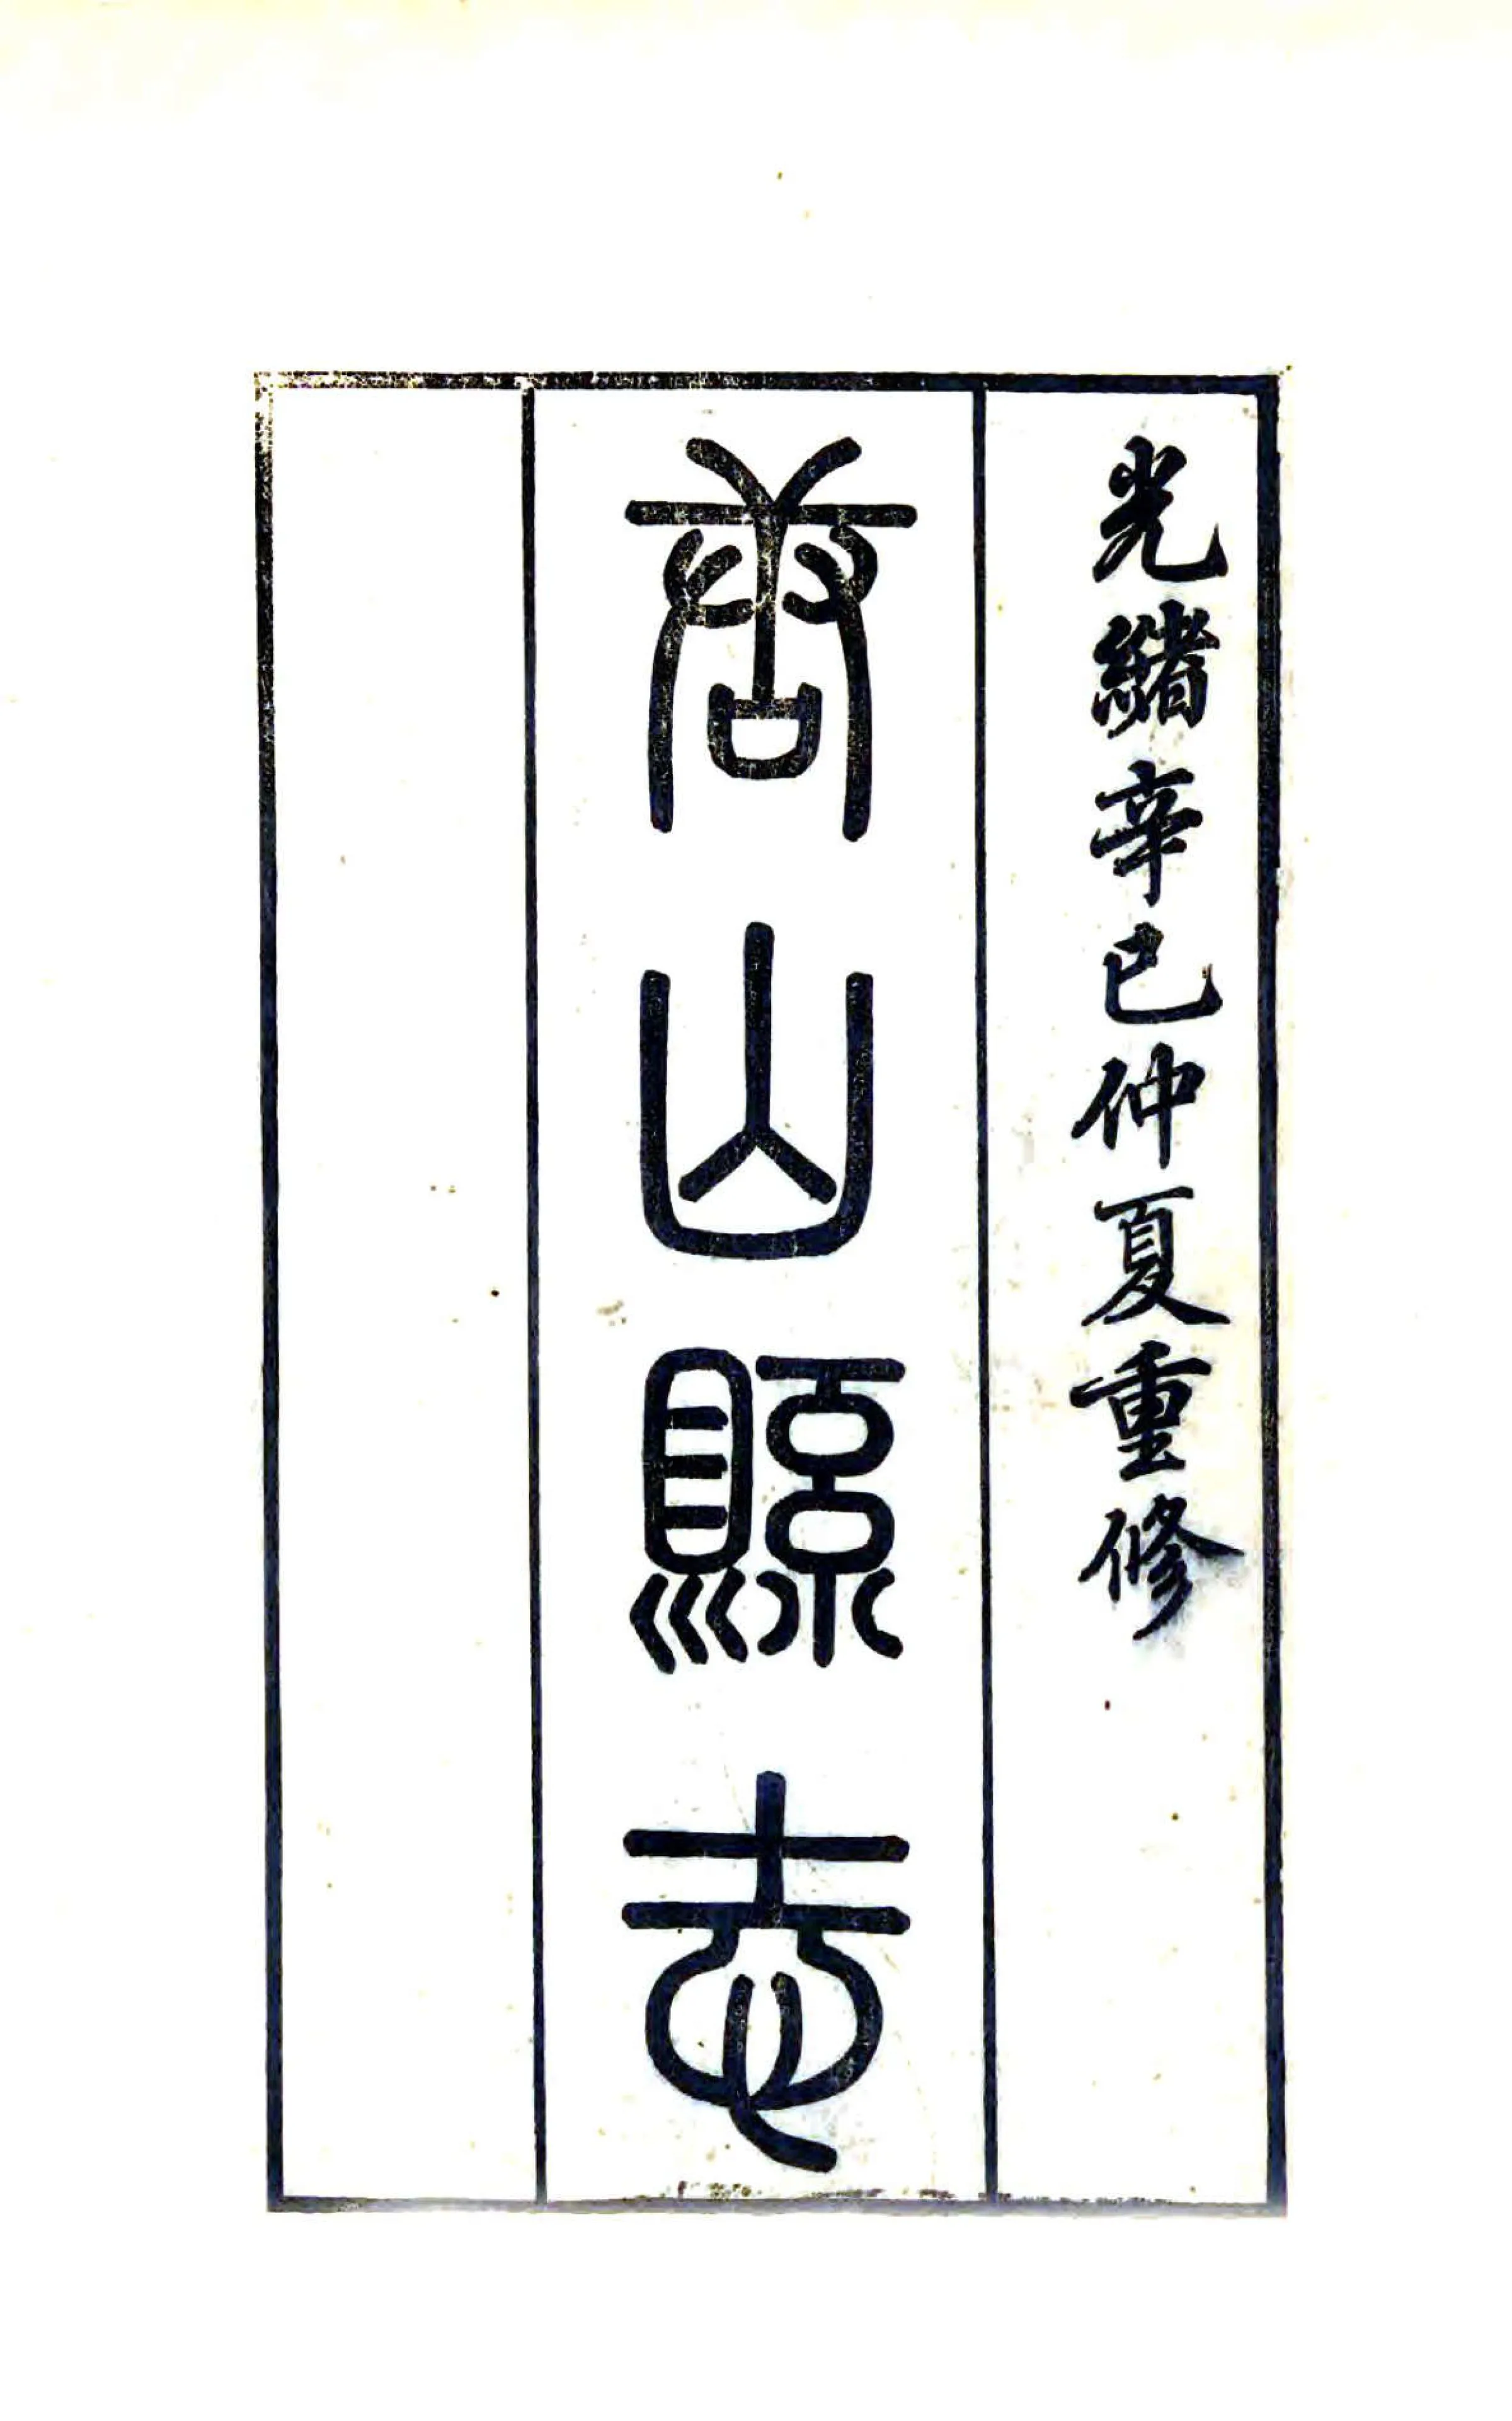 光緒辛巳仲夏重修
唐山縣志